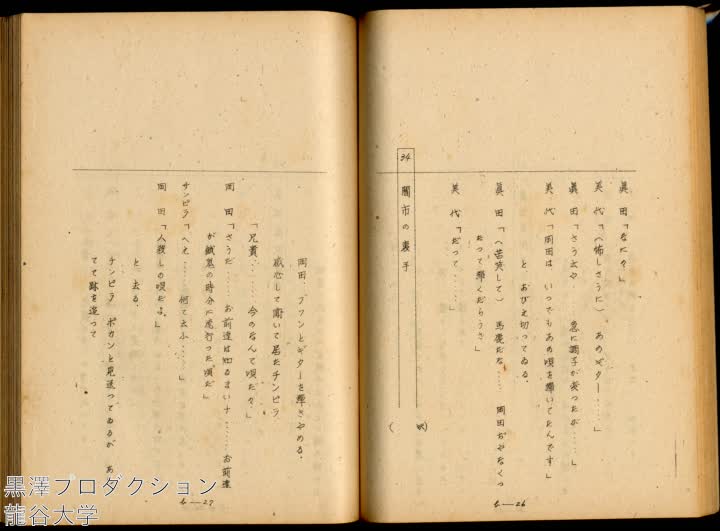 眞 田「なに?」
美 代「(怖しさうに) あのギター……」
眞 田「さう云や 急に調子が変つたが……」
美 代「岡田は いつでもあの唄を弾いてたんです」
と おびえ切つてゐる。
眞 田「(苦笑して) 馬鹿だな…… 岡田ぢやなくつ
たつて弾くだらうさ」
美 代「だつて……」
34 闇市の裏手
( 吹)
b—26
岡田、フツンとギターを弾きやめる。
感心して聞いて居たチンピラ
「兄貴…… 今のなんて唄だ?」
岡 田「さうだ…… お前達は知るまいナ…… お前達
が餓鬼の時分に流行つた唄だ」
チンピラ「へえ…… 何て云ふ……」
岡 田「人殺しの唄だよ」
と 去る。
チンピラ ポカンと見送つてゐるが あ
てて跡を追つて
b—27
黒澤プロダクション
龍谷大学